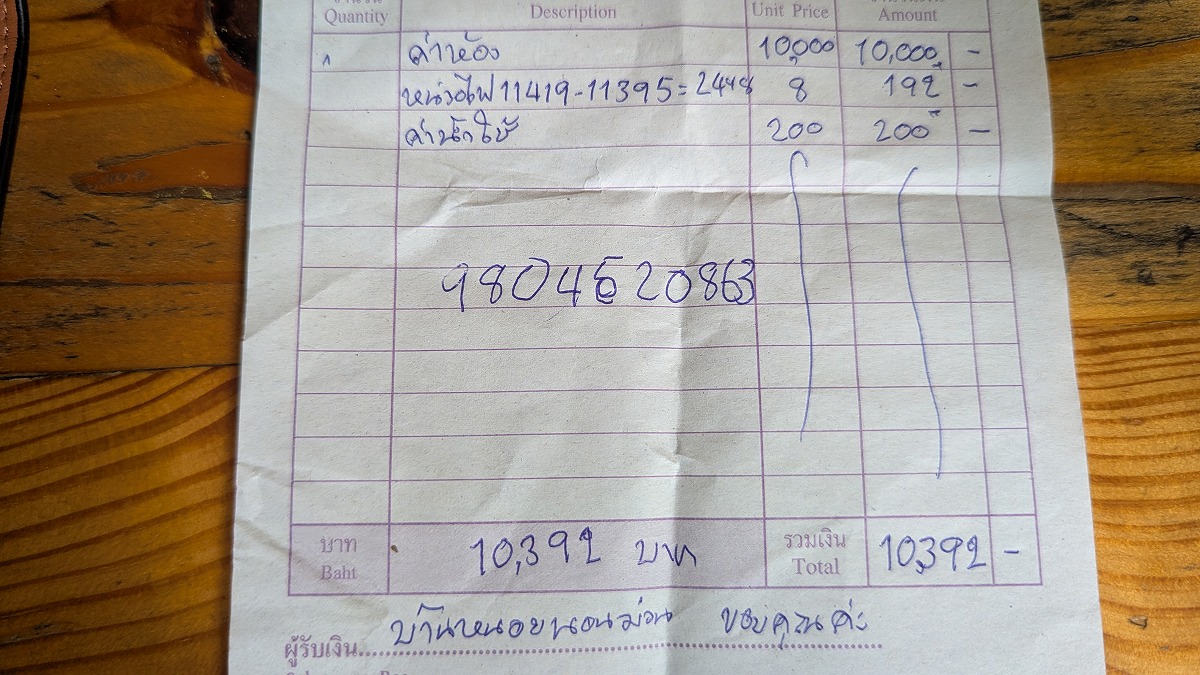 Quantity Description Unit Price Amount
๑ ค่าห้อง 10,000 10,000 -
หน่วยไฟ 11419-11395= 8 192 -
ค่าน้ำใช้ 200 200 -
9804620863
บาท 10,392 บาท รวมเงิน 10,392 -
Baht Total
บ้านหน่อยนอนม่วน ขอบคุณค่ะ
ผู้รับเงิน